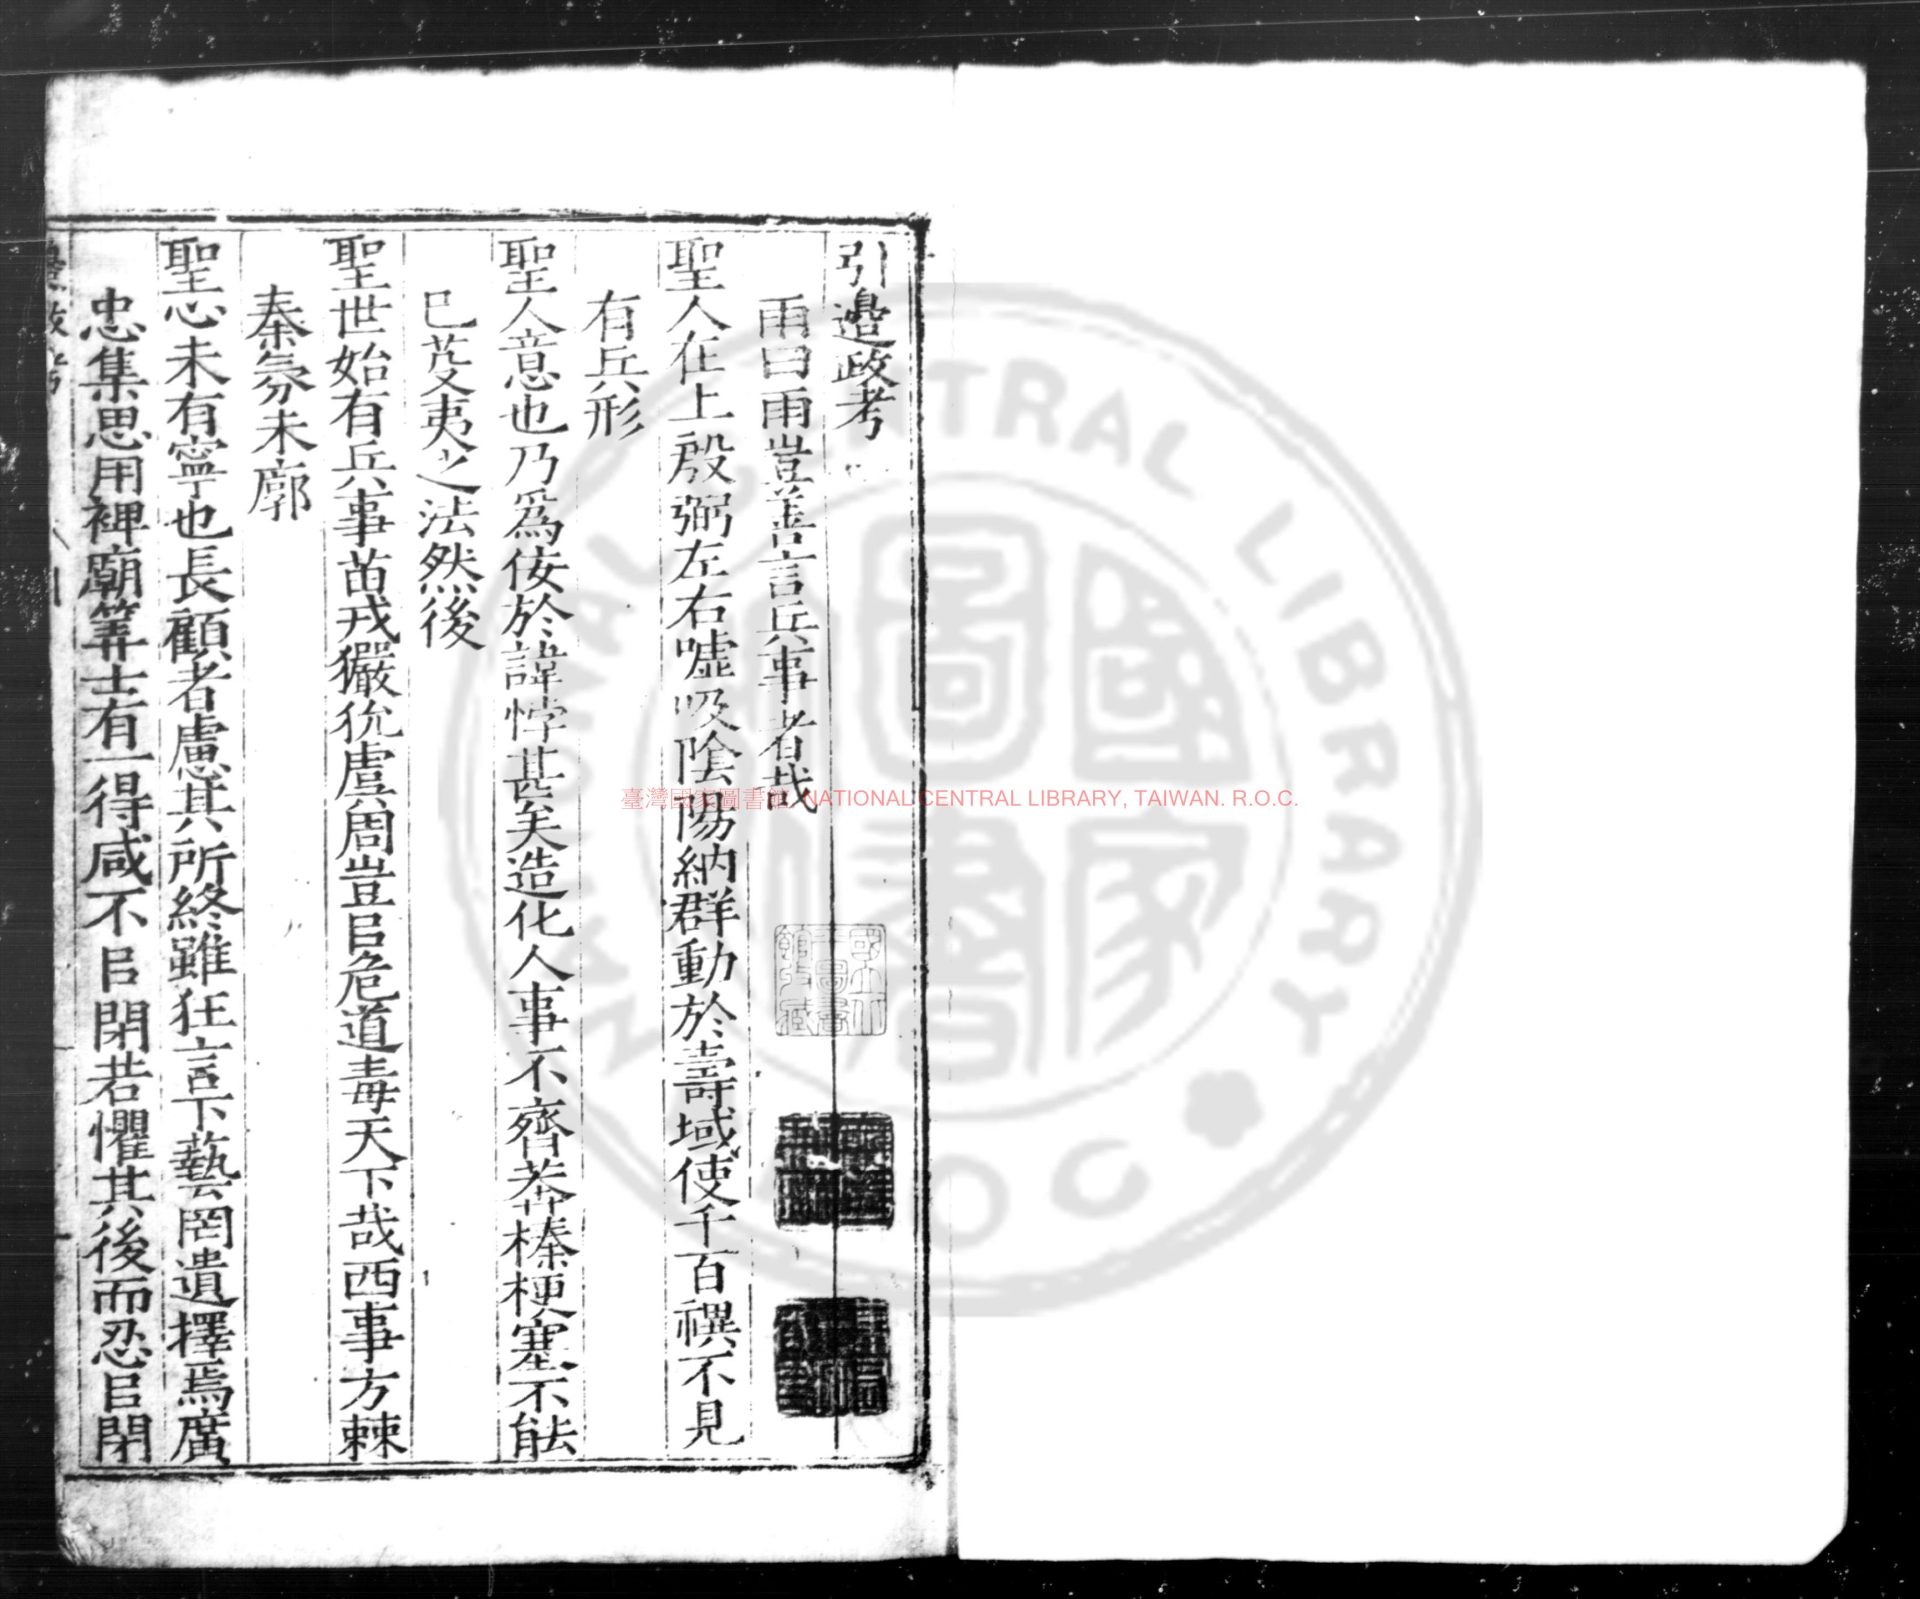 引邉政考
雨曰雨豈善言兵事者哉
聖人在上殷弼左右嘘吸陰陽納群動於壽域使千百禩不見
有兵形
聖人意也乃爲佞於諱悖甚矣造化人事不齊莽榛梗塞不能
已芟夷之法然後
聖世始有兵事苗戎玁狁虞周豈㠯危道毒天下哉西事方棘
秦氛未廓
聖心未有寧也長顧者慮其所終雖狂言下藝罔遺擇焉廣
忠集思用裨廟筭士有一得咸不㠯閉若懼其後而忍㠯閉
臺灣國家圖書館, NATIONAL CENTRAL LIBRARY, TAIWAN. R.O.C.
NATIONAL CENTRAL LIBRARY R.O.C.
國家圖書